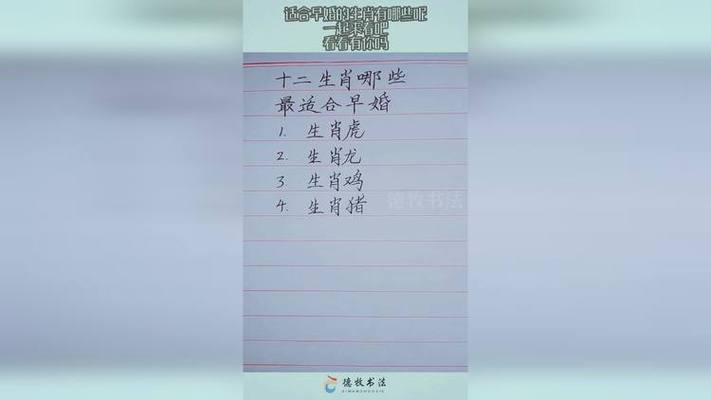 适合早婚的生肖有哪些呢
一起来看吧
看看有你吗
十二生肖哪些
最适合早婚
1. 生肖虎
2. 生肖龙
3 生肖鸡
4. 生肖猪
德牧书法
德牧书法